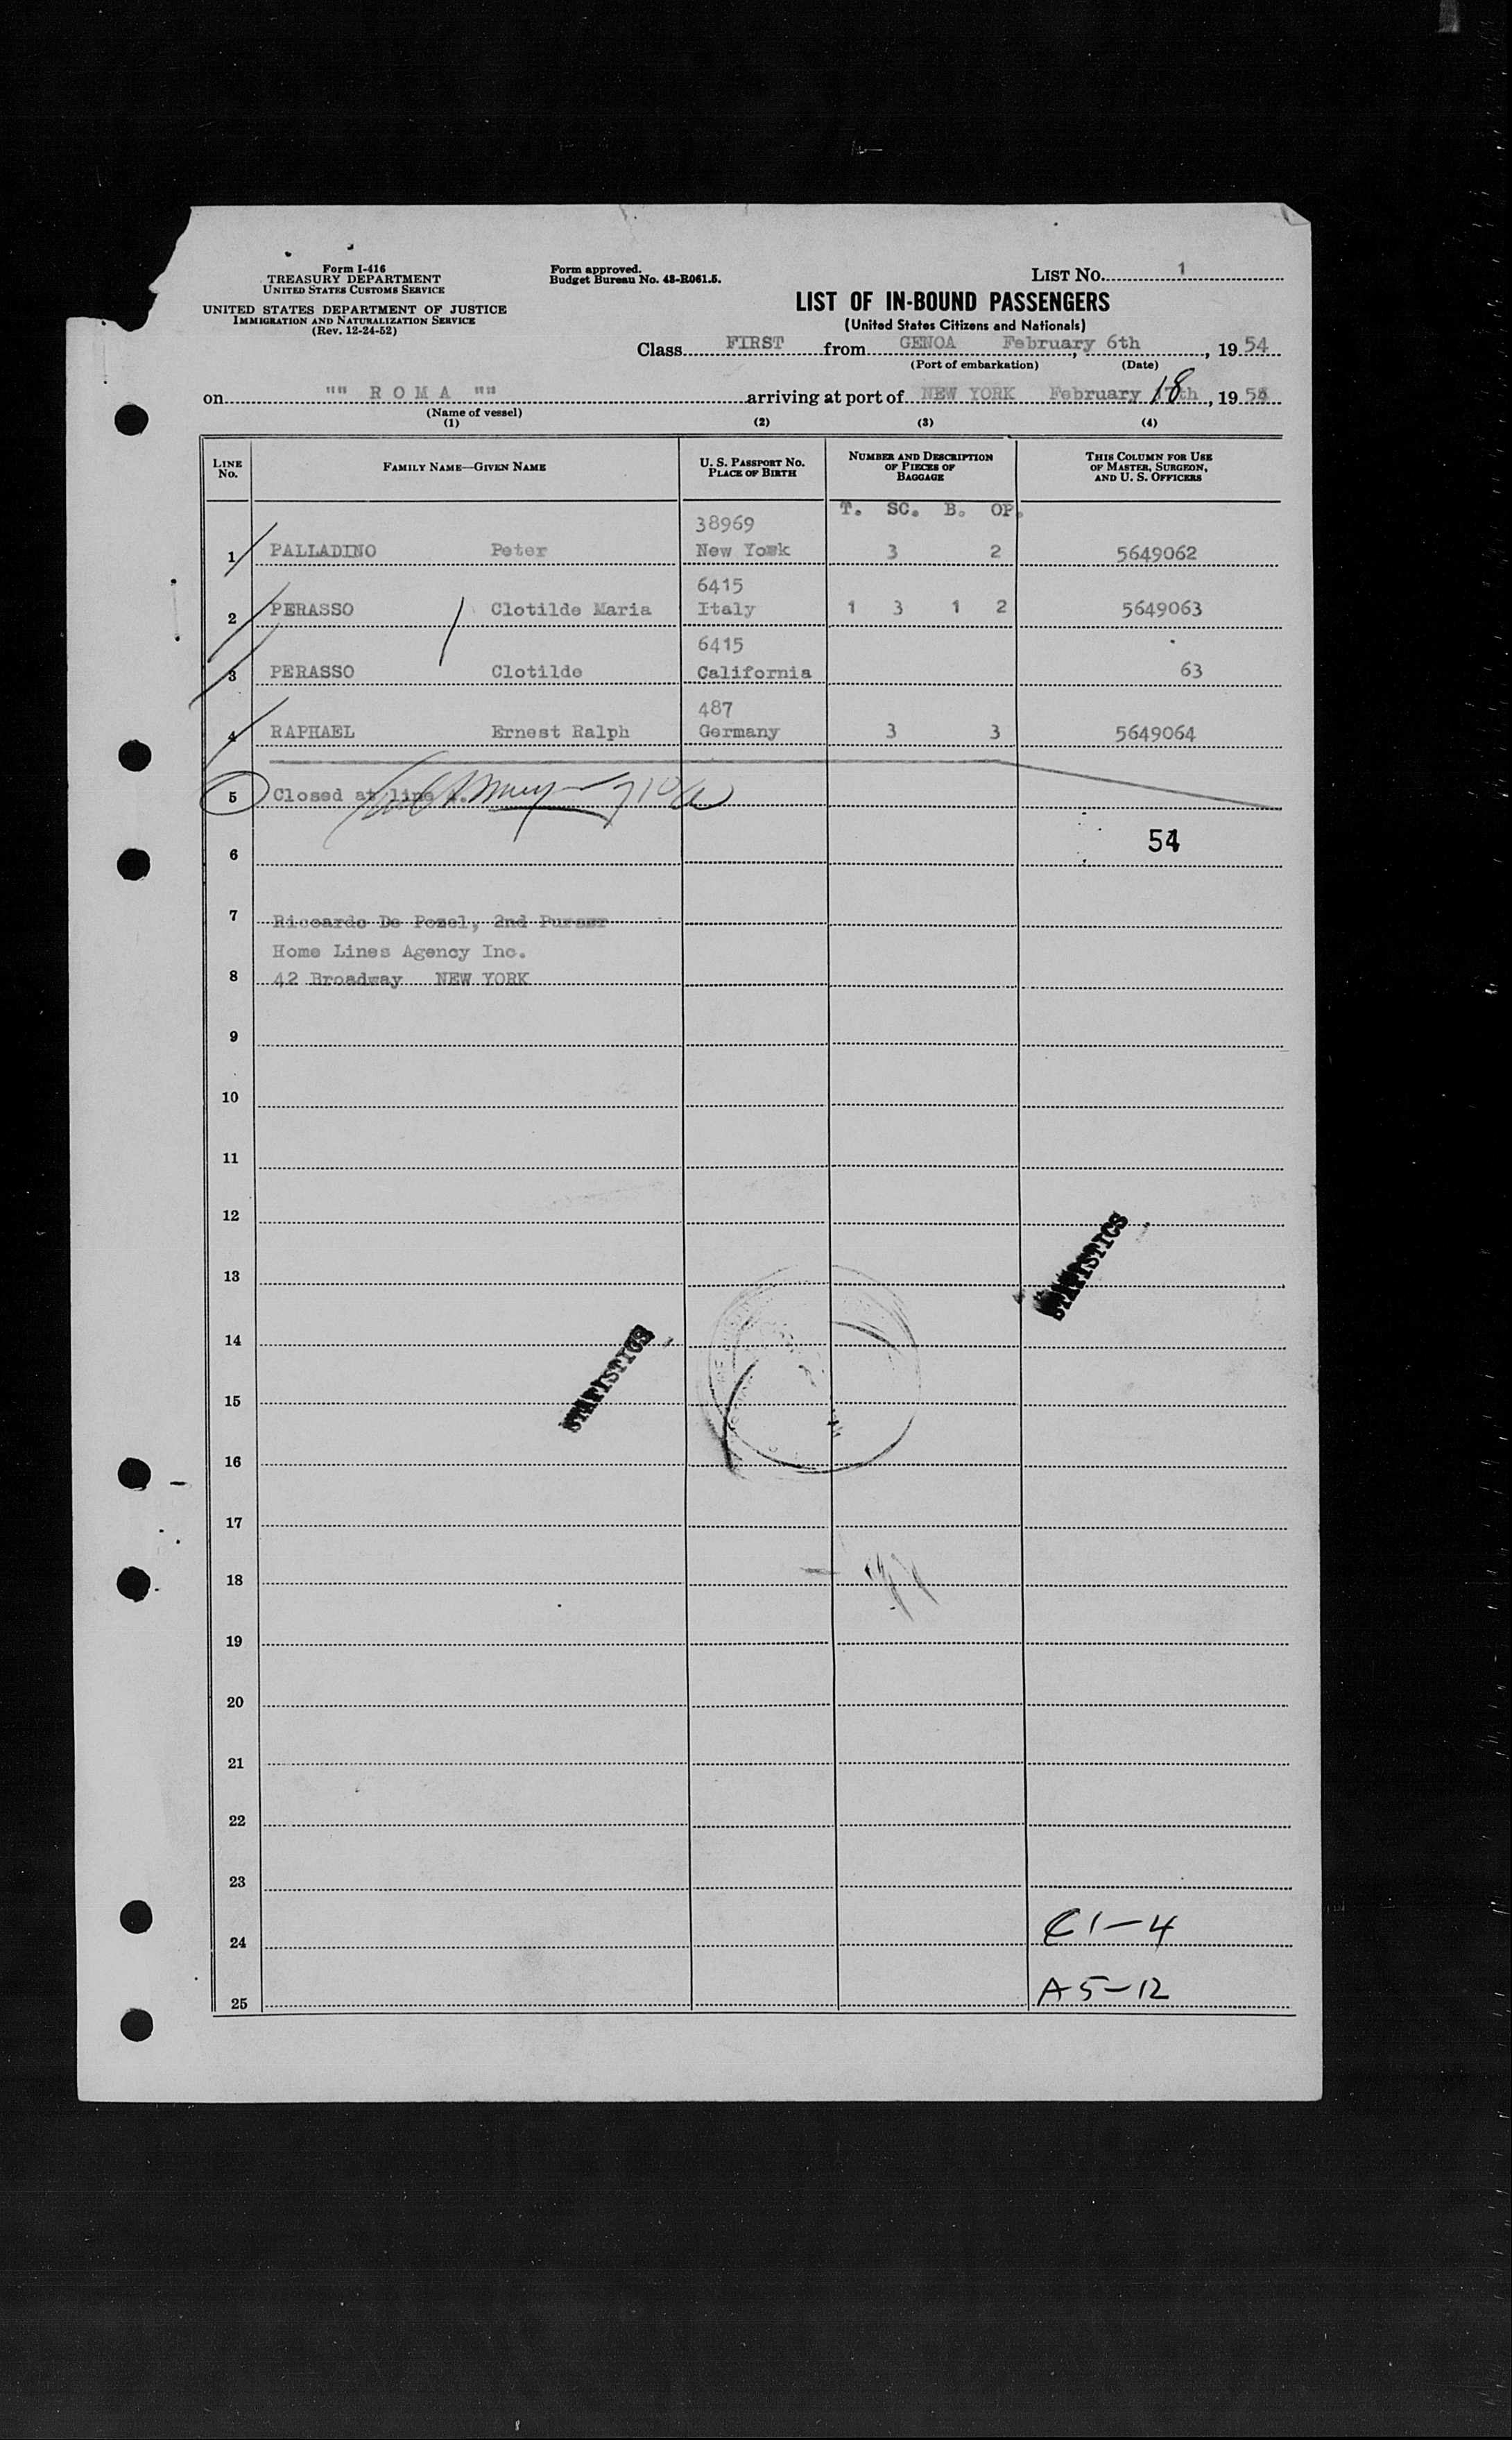 Form I-416
TREASURY DEPARTMENT
UNITED STATES CUSTOMS SERVICE
UNITED STATES DEPARTMENT OF JUSTICE
IMMIGRATION AND NATURALIZATION SERVICE
(Rev. 12-24-52)
Form approved.
Budget Bureau No. 43-R061.5.
LIST NO. 1
LIST OF IN-BOUND PASSENGERS
(United States Citizens and Nationals)
Class FIRST from GENOA February 6th, 1954
(Port of embarkation) (Date)
on "" R O M A "" arriving at port of NEW YORK February 18th, 1954
(Name of vessel)
(1) (2) (3) (4)
LINE NO. FAMILY NAME—GIVEN NAME U. S. PASSPORT NO. PLACE OF BIRTH NUMBER AND DESCRIPTION OF PIECES OF BAGGAGE THIS COLUMN FOR USE OF MASTER, SURGEON, AND U. S. OFFICERS
T. SC. B. OP.
38969
1 PALLADINO Peter New York 3 2 5649062
6415
2 PERASSO Clotilde Maria Italy 1 3 1 2 5649063
6415
3 PERASSO Clotilde California 63
487
4 RAPHAEL Ernest Ralph Germany 3 3 5649064
5 Closed at line 4.
54
6
7 Riccardo De Pozel, 2nd Purser
Home Lines Agency Inc.
8 42 Broadway NEW YORK
9
10
11
12
STATISTICS
13
14
STATISTICS
15
16
17
18
19
20
21
22
23
C 1-4
24
A 5-12
25